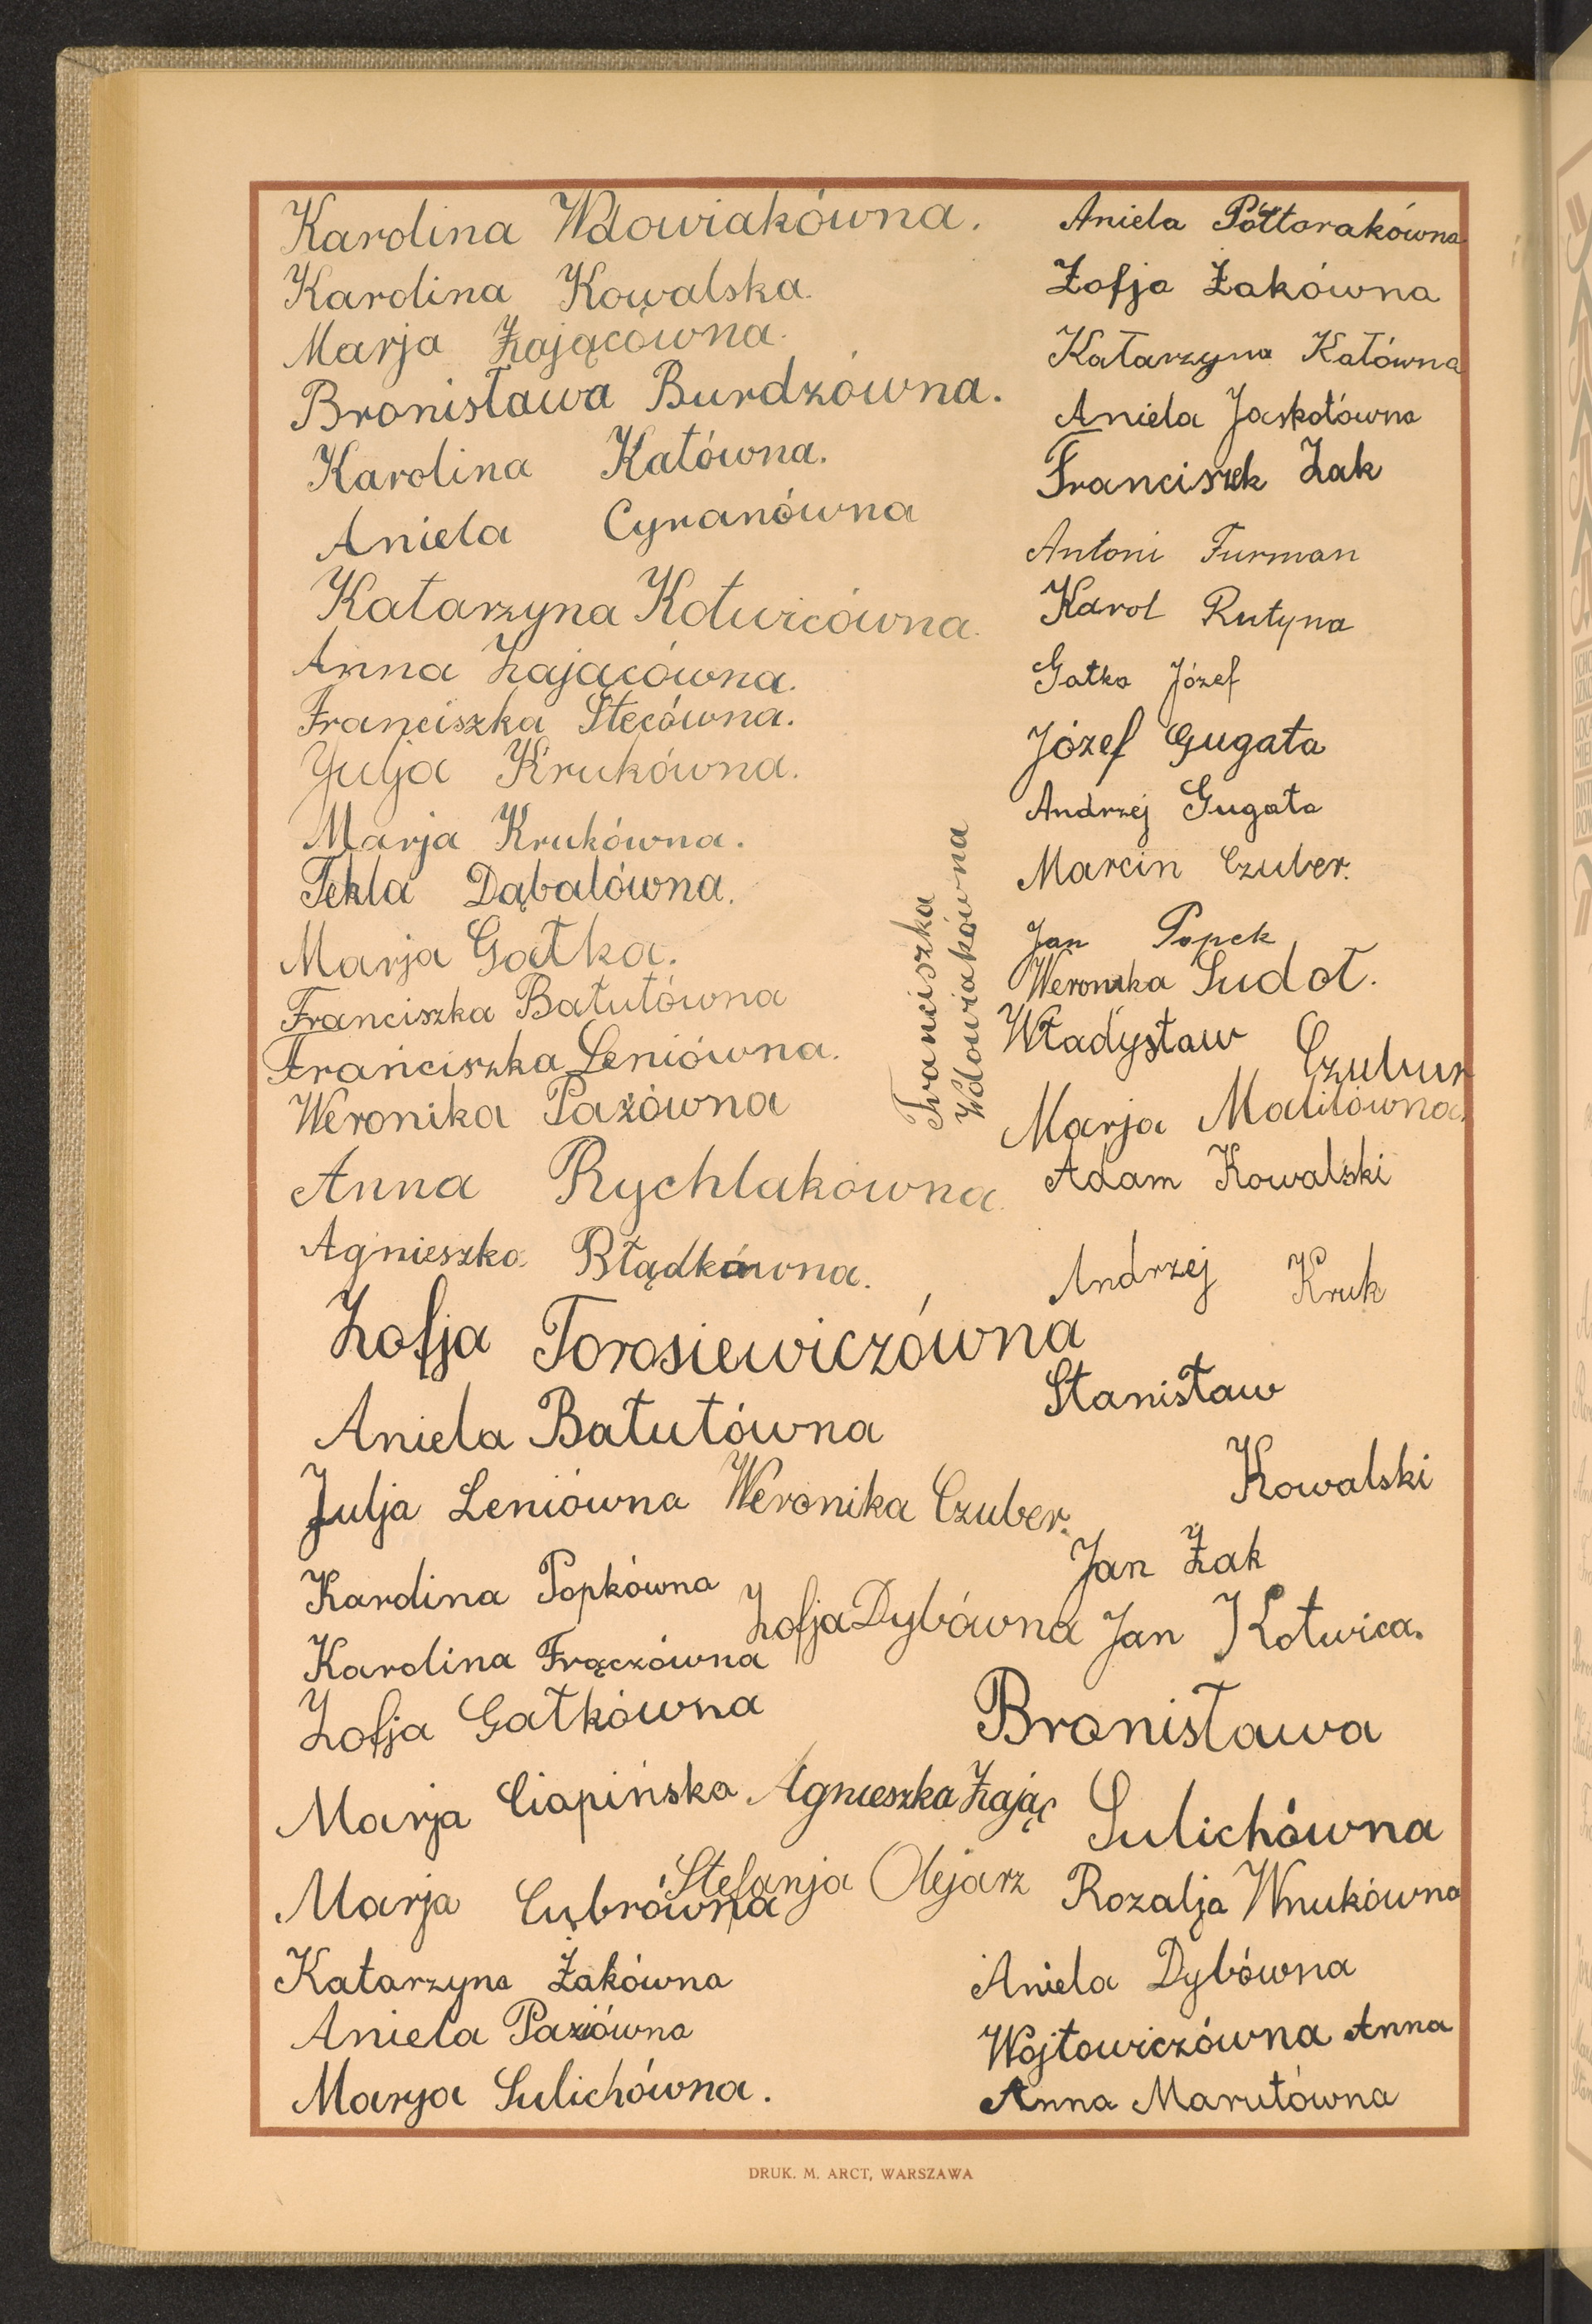 Karolina Wdowiakówna.
Karolina Kowalska.
Marja Zającówna.
Bronisława Burdzówna.
Karolina Katówna.
Aniela Cyranówna
Katarzyna Kotwicówna.
Anna Zającówna.
Franciszka Stecówna.
Julja Krukówna.
Marja Krukówna.
Tekla Dąbalówna.
Marja Gałka.
Franciszka Batutówna
Franciszka Leniówna.
Weronika Paziówna
Anna Rychlakówna.
Agnieszka Błądkówna.
Zofja Torosiewiczówna
Aniela Batutówna
Julja Leniówna Weronika Czuber.
Karolina Popkówna
Zofja Dybówna
Karolina Frączówna
Zofja Gałkówna
Marja Ciapińska Agnieszka Zając
Stefanja Olejarz
Marja Cąbrówna
Katarzyna Żakówna
Aniela Paziówna
Marya Sulichówna.
Franciszka
Wdowiakówna
Aniela Półtorakówna
Zofja Żakówna
Katarzyna Katówna
Aniela Jaskołówna
Franciszek Żak
Antoni Furman
Karol Rutyna
Gałka Józef
Józef Gugała
Andrzej Gugała
Marcin Czuber.
Jan Popek
Weronika Sudoł.
Władysław
Czubur
Marja Malitówna.
Adam Kowalski
Andrzej Kruk
Stanisław
Kowalski
Jan Żak
Jan Kotwica.
Bronisława
Sulichówna
Rozalja Wnukówna
Aniela Dybówna
Wojtowiczówna Anna
Anna Marutówna
DRUK. M. ARCT, WARSZAWA